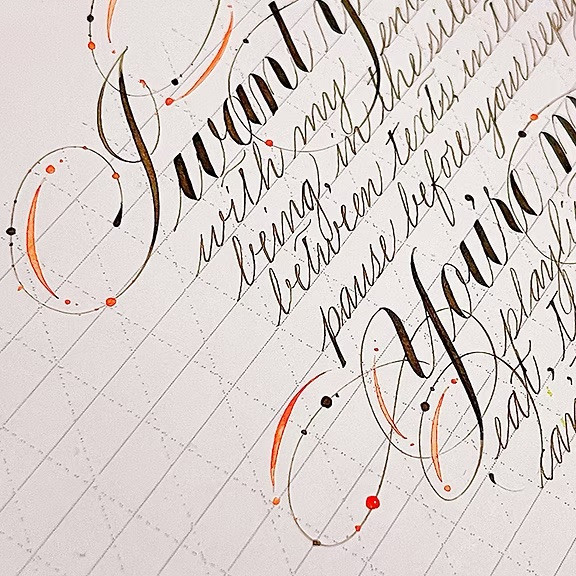 I want y
with my
being, in the sile
between texts, in th
pause before your
You're m
playli
eat, th